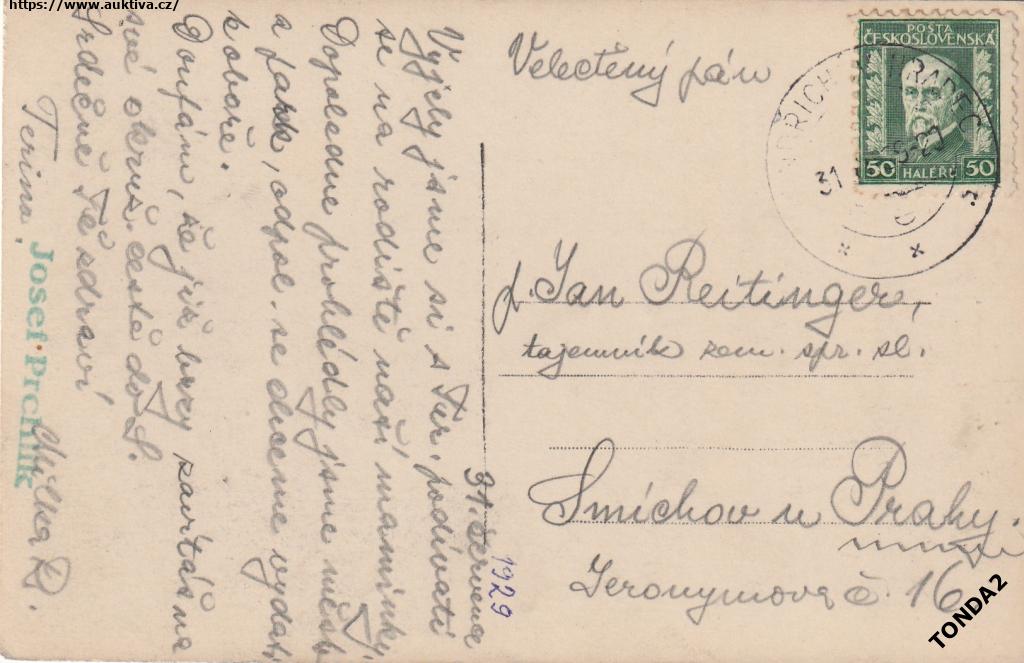 https://www.auktiva.cz/
Velectěný pán
POŠTA
ČESKOSLOVENSKÁ
50 HALÉŘŮ 50
HRADEC
31
p. Jan Reitinger,
tajemník zem. spr. sl.
Smíchov u Prahy.
Jeronymova č. 16
31. července
1929
Vyjely jsme si s Tur. podívati
se na rodiště naší maminky.
Dopoledne prohlédly jsme město
a zámek, odpol. se chceme vydati
Doufám, že již brzy zavítáš na
své okruž. cestě do S.
Srdečně Tě zdraví
Terina.
Milka R.
Josef Prchlík
TONDA2